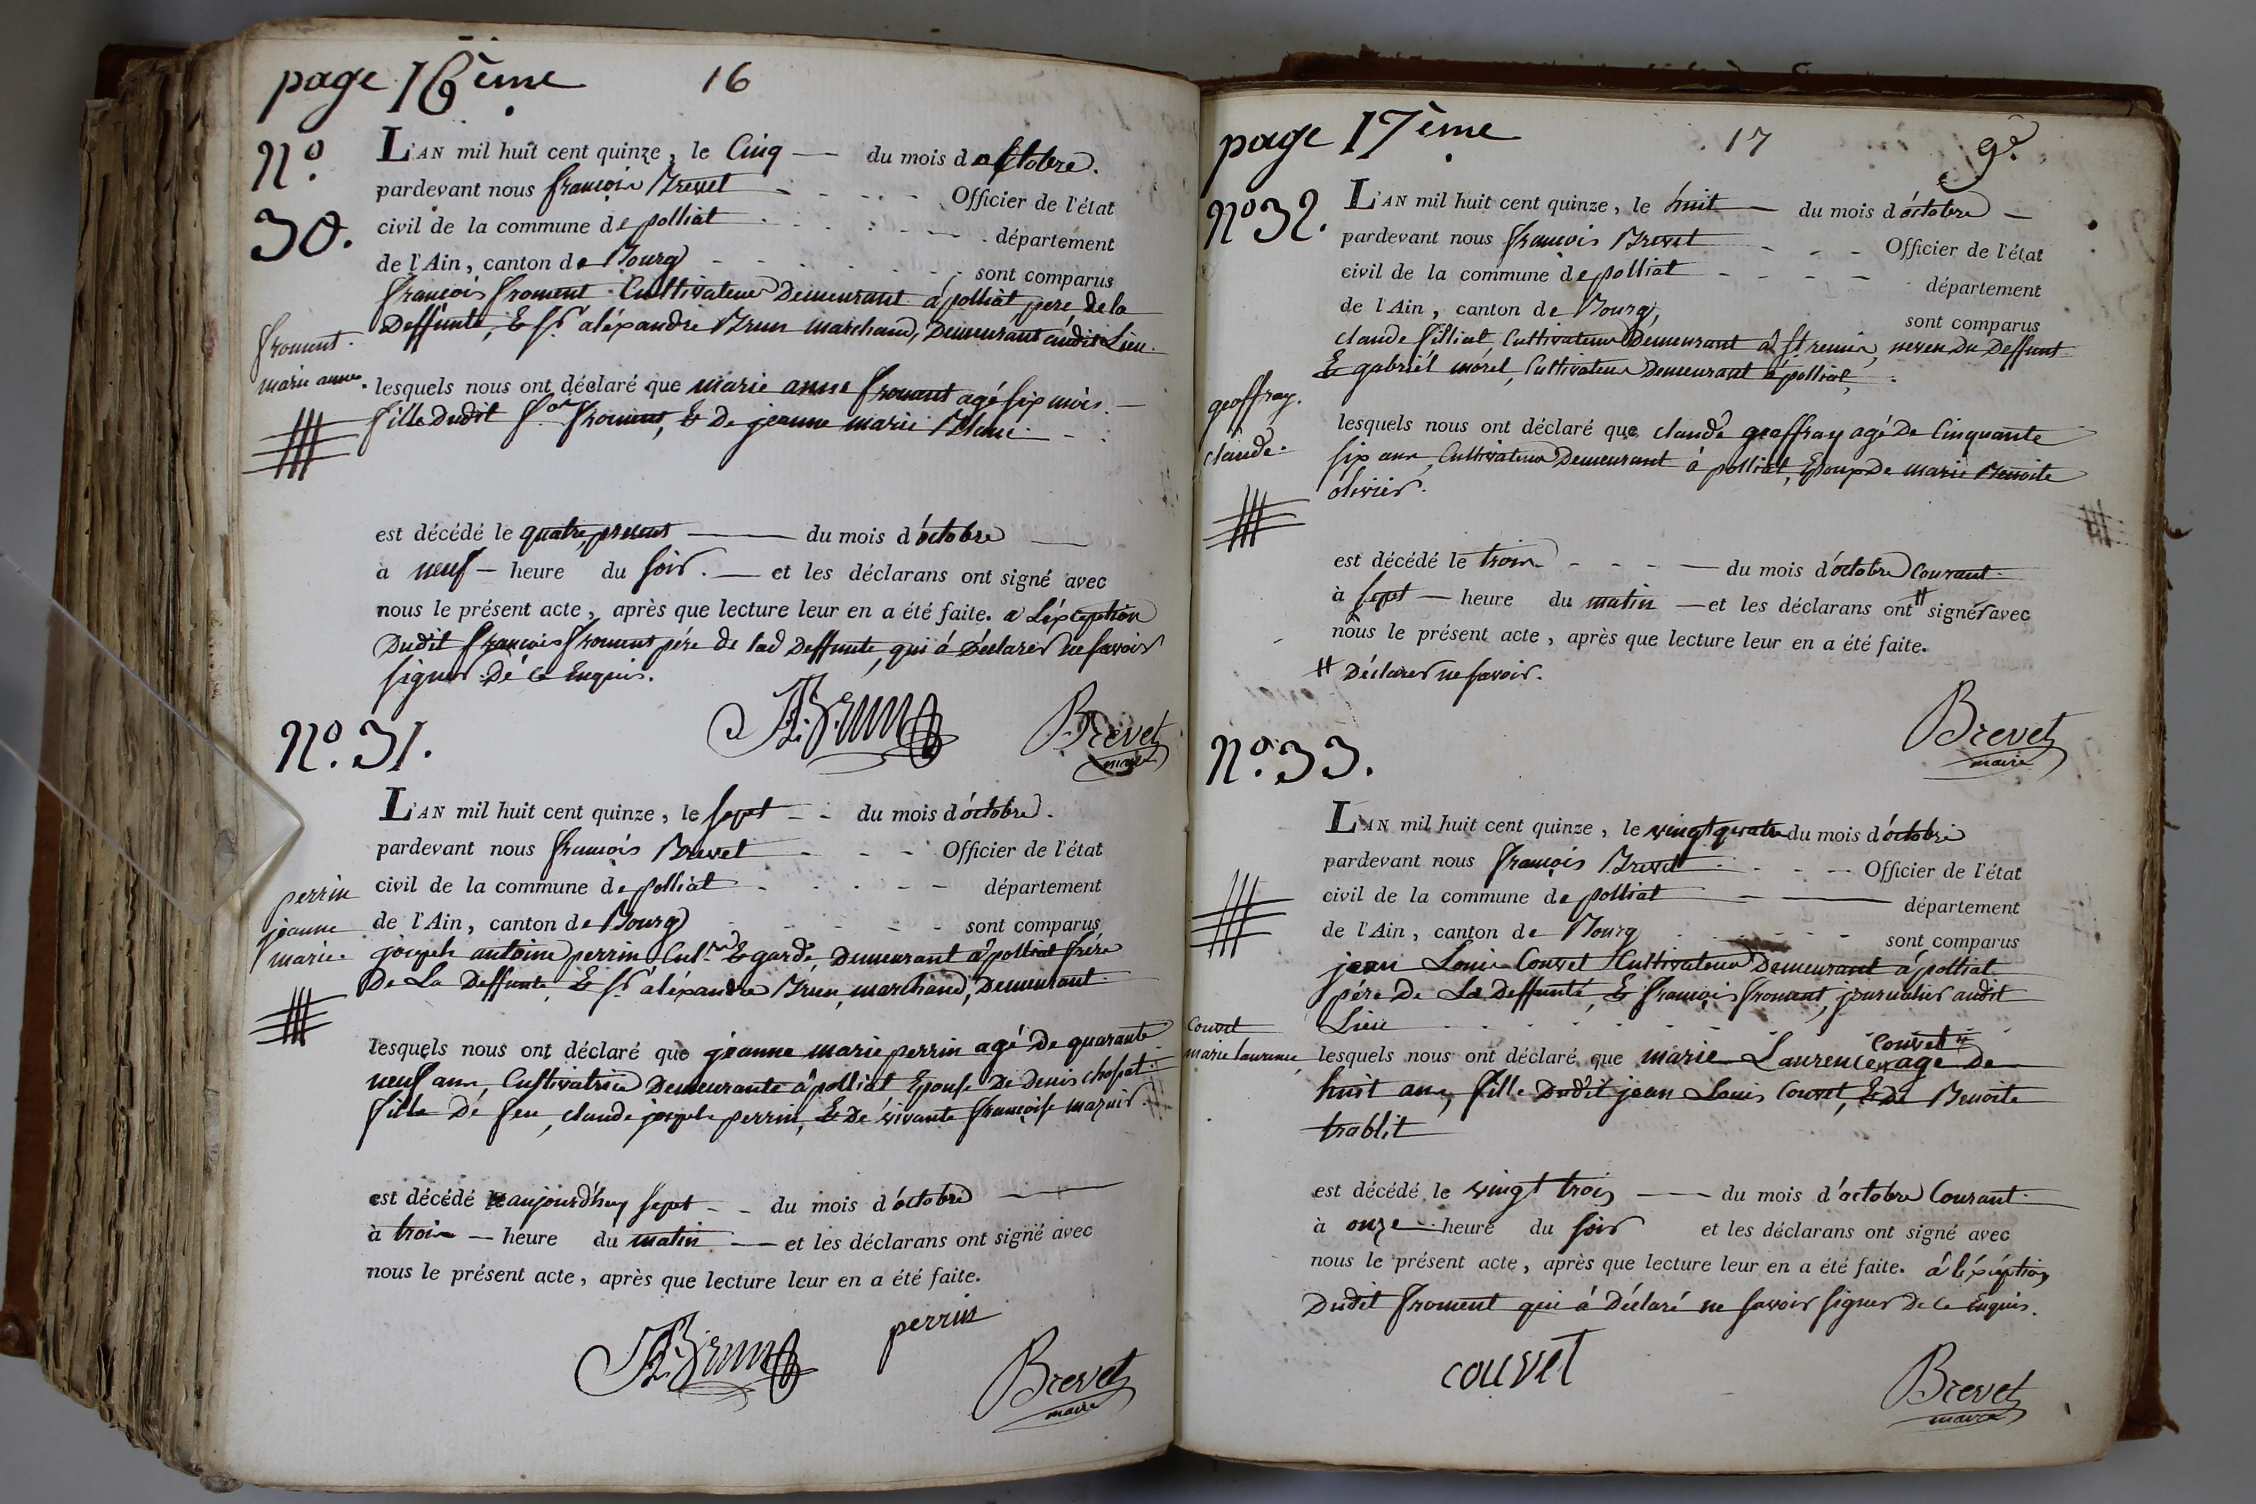 page 16ème 16
N° 30.
L'AN mil huit cent quinze, le Cinq — du mois d'octobre.
pardevant nous françois Brevet Officier de l'état
civil de la commune de polliat département
de l'Ain, canton de Bourg sont comparus
françois froment Cultivateur Demeurant à polliat, pere de la
Deffunte, & Sr aléxandre Brun marchand, Demeurant audit Lieu.
froment.
marie anne.
lesquels nous ont déclaré que marie anne froment agé six mois.
fille Dudit f.ois froment, & De jeanne marie
est décédé le quatre, present — du mois d'octobre —
à neuf — heure du soir. — et les déclarans ont signé avec
nous le présent acte, après que lecture leur en a été faite. a L'éxception
Dudit françois froment pére de lad Deffunte, qui à déclarer ne savoir
signer De ce Enquis.
A. Brun Brevet
maire
N°. 31.
L'AN mil huit cent quinze, le sept — du mois d'octobre.
pardevant nous françois Brevet Officier de l'état
civil de la commune de polliat département
de l'Ain, canton de Bourg sont comparus
perrin
jeanne
marie.
joseph antoine perrin Cult.r & garde, Demeurant à polliat frére
De La Deffunte, & Sr aléxandre Brun, marchand, Demeurant.
lesquels nous ont déclaré que jeanne marie perrin agé De quarante
neuf ans, Cultivatrice Demeurante à polliat Epouse De Denis chossat.
fille Dé feu, claude joseph perrin, & Dé vivante françoise
est décédé le aujourd'huy sept — du mois d'octobre —
à trois — heure du matin — et les déclarans ont signé avec
nous le présent acte, après que lecture leur en a été faite.
A. Brun perrin
Brevet
maire
page 17ème 17 9e.
N° 32.
L'AN mil huit cent quinze, le huit — du mois d'octobre —
pardevant nous françois Brevet Officier de l'état
civil de la commune de polliat département
de l'Ain, canton de Bourg, sont comparus
claude filliat, Cultivateur Demeurant à St remis, neveu Du Deffunt
& gabriél morél, Cultivateur Demeurant à polliat,
geoffray.
claude.
lesquels nous ont déclaré que claude geoffray agé De Cinquante
six ans, Cultivateur Demeurant à polliat, Epoux De marie Benoite
olivier.
est décédé le trois — du mois d'octobre Courant.
à sept — heure du matin — et les déclarans ont # signér avec
nous le présent acte, après que lecture leur en a été faite.
# Déclarer ne savoir.
Brevet
maire
N°. 33.
L'AN mil huit cent quinze, le vingt quatre du mois d'octobre
pardevant nous françois Brevet Officier de l'état
civil de la commune de polliat — département
de l'Ain, canton de Bourg sont comparus
jean Louis Couvet Cultivateur Demeurant à polliat.
pére De La Deffunte, & françois froment, journalier audit
Lieu
Couvet
marie laurence
Couvet #
lesquels nous ont déclaré que marie Laurence # agé De
huit ans, fille Dudit jean Louis Couvet, & De Benoite
trablit
est décédé le vingt trois — du mois d'octobre Courant.
à onze — heure du soir et les déclarans ont signé avec
nous le présent acte, après que lecture leur en a été faite. à l'éxception
Dudit froment qui à Déclaré ne savoir signer De ce Enquis.
couvet
Brevet
maire